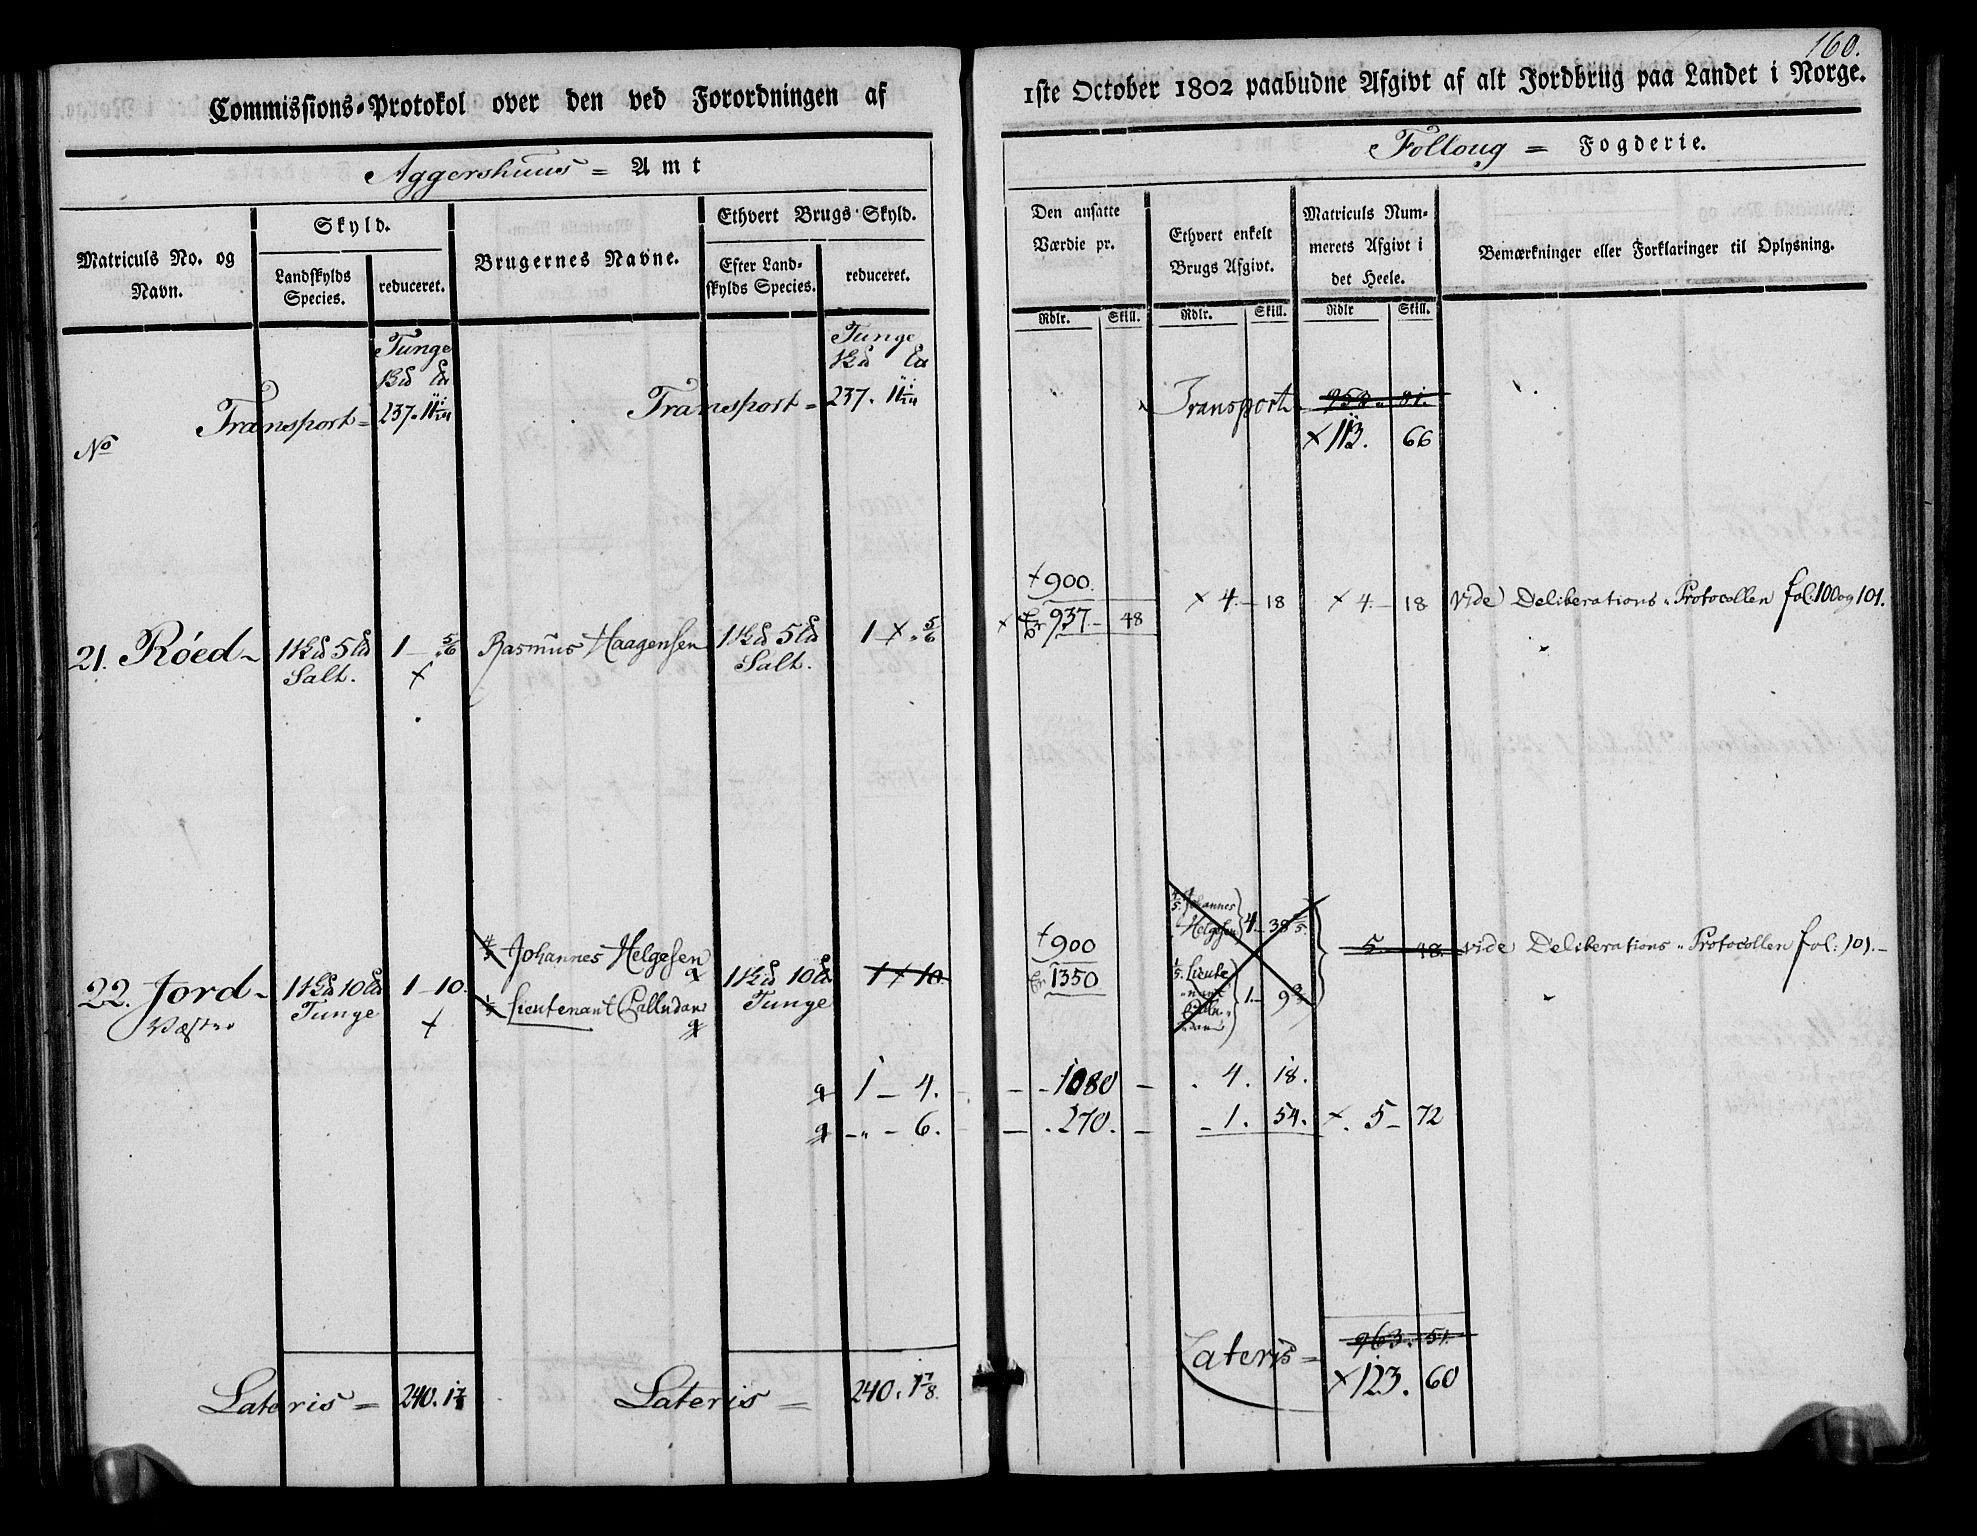 160.
Commissions-Protokol over den ved Forordningen af 1ste October 1802 paabudne Afgivt af alt Jordbrug paa Landet i Norge.
Aggershuus = Amt
Folloug = Fogderie.
Matriculs No. og Navn.
Skyld.
Landskylds Species.
reduceret.
Brugernes Navne.
Ethvert Brugs Skyld.
Efter Landskylds Species.
reduceret.
Den ansatte Værdie pr.
Rdlr. Skill.
Ethvert enkelt Brugs Afgivt.
Rdlr. Skill.
Matriculs Nummerets Afgivt i det Heele.
Rdlr Skill.
Bemærkninger eller Forklaringer til Oplysning.
Tunge
Tunge
Transport =
Transport =
Transport
113. 66
No
900.
21. Röed
Salt.
1 - 5/6
Rasmus Haagensen
Salt.
1 - 5/6
937 - 48
4 - 18
4 - 18
vide Deliberations-Protocollen fol. 100 og 101.
900
22. Jord
Væstre
Tunge
1 - 10.
4/5 Johannes Helgesen
1/5 Lieutenant Palludan
Tunge
1 - 10
1350
4/5 Johannes Helgesen
1/5 Lieute
5 - 48.
vide Deliberations-Protocollen fol: 101. -
1 - 4.
1080
4. 18.
6.
270.
1. 54.
5 - 72
Lateris =
Lateris =
240. 1 7/8.
Lateris =
963. 51.
123. 60